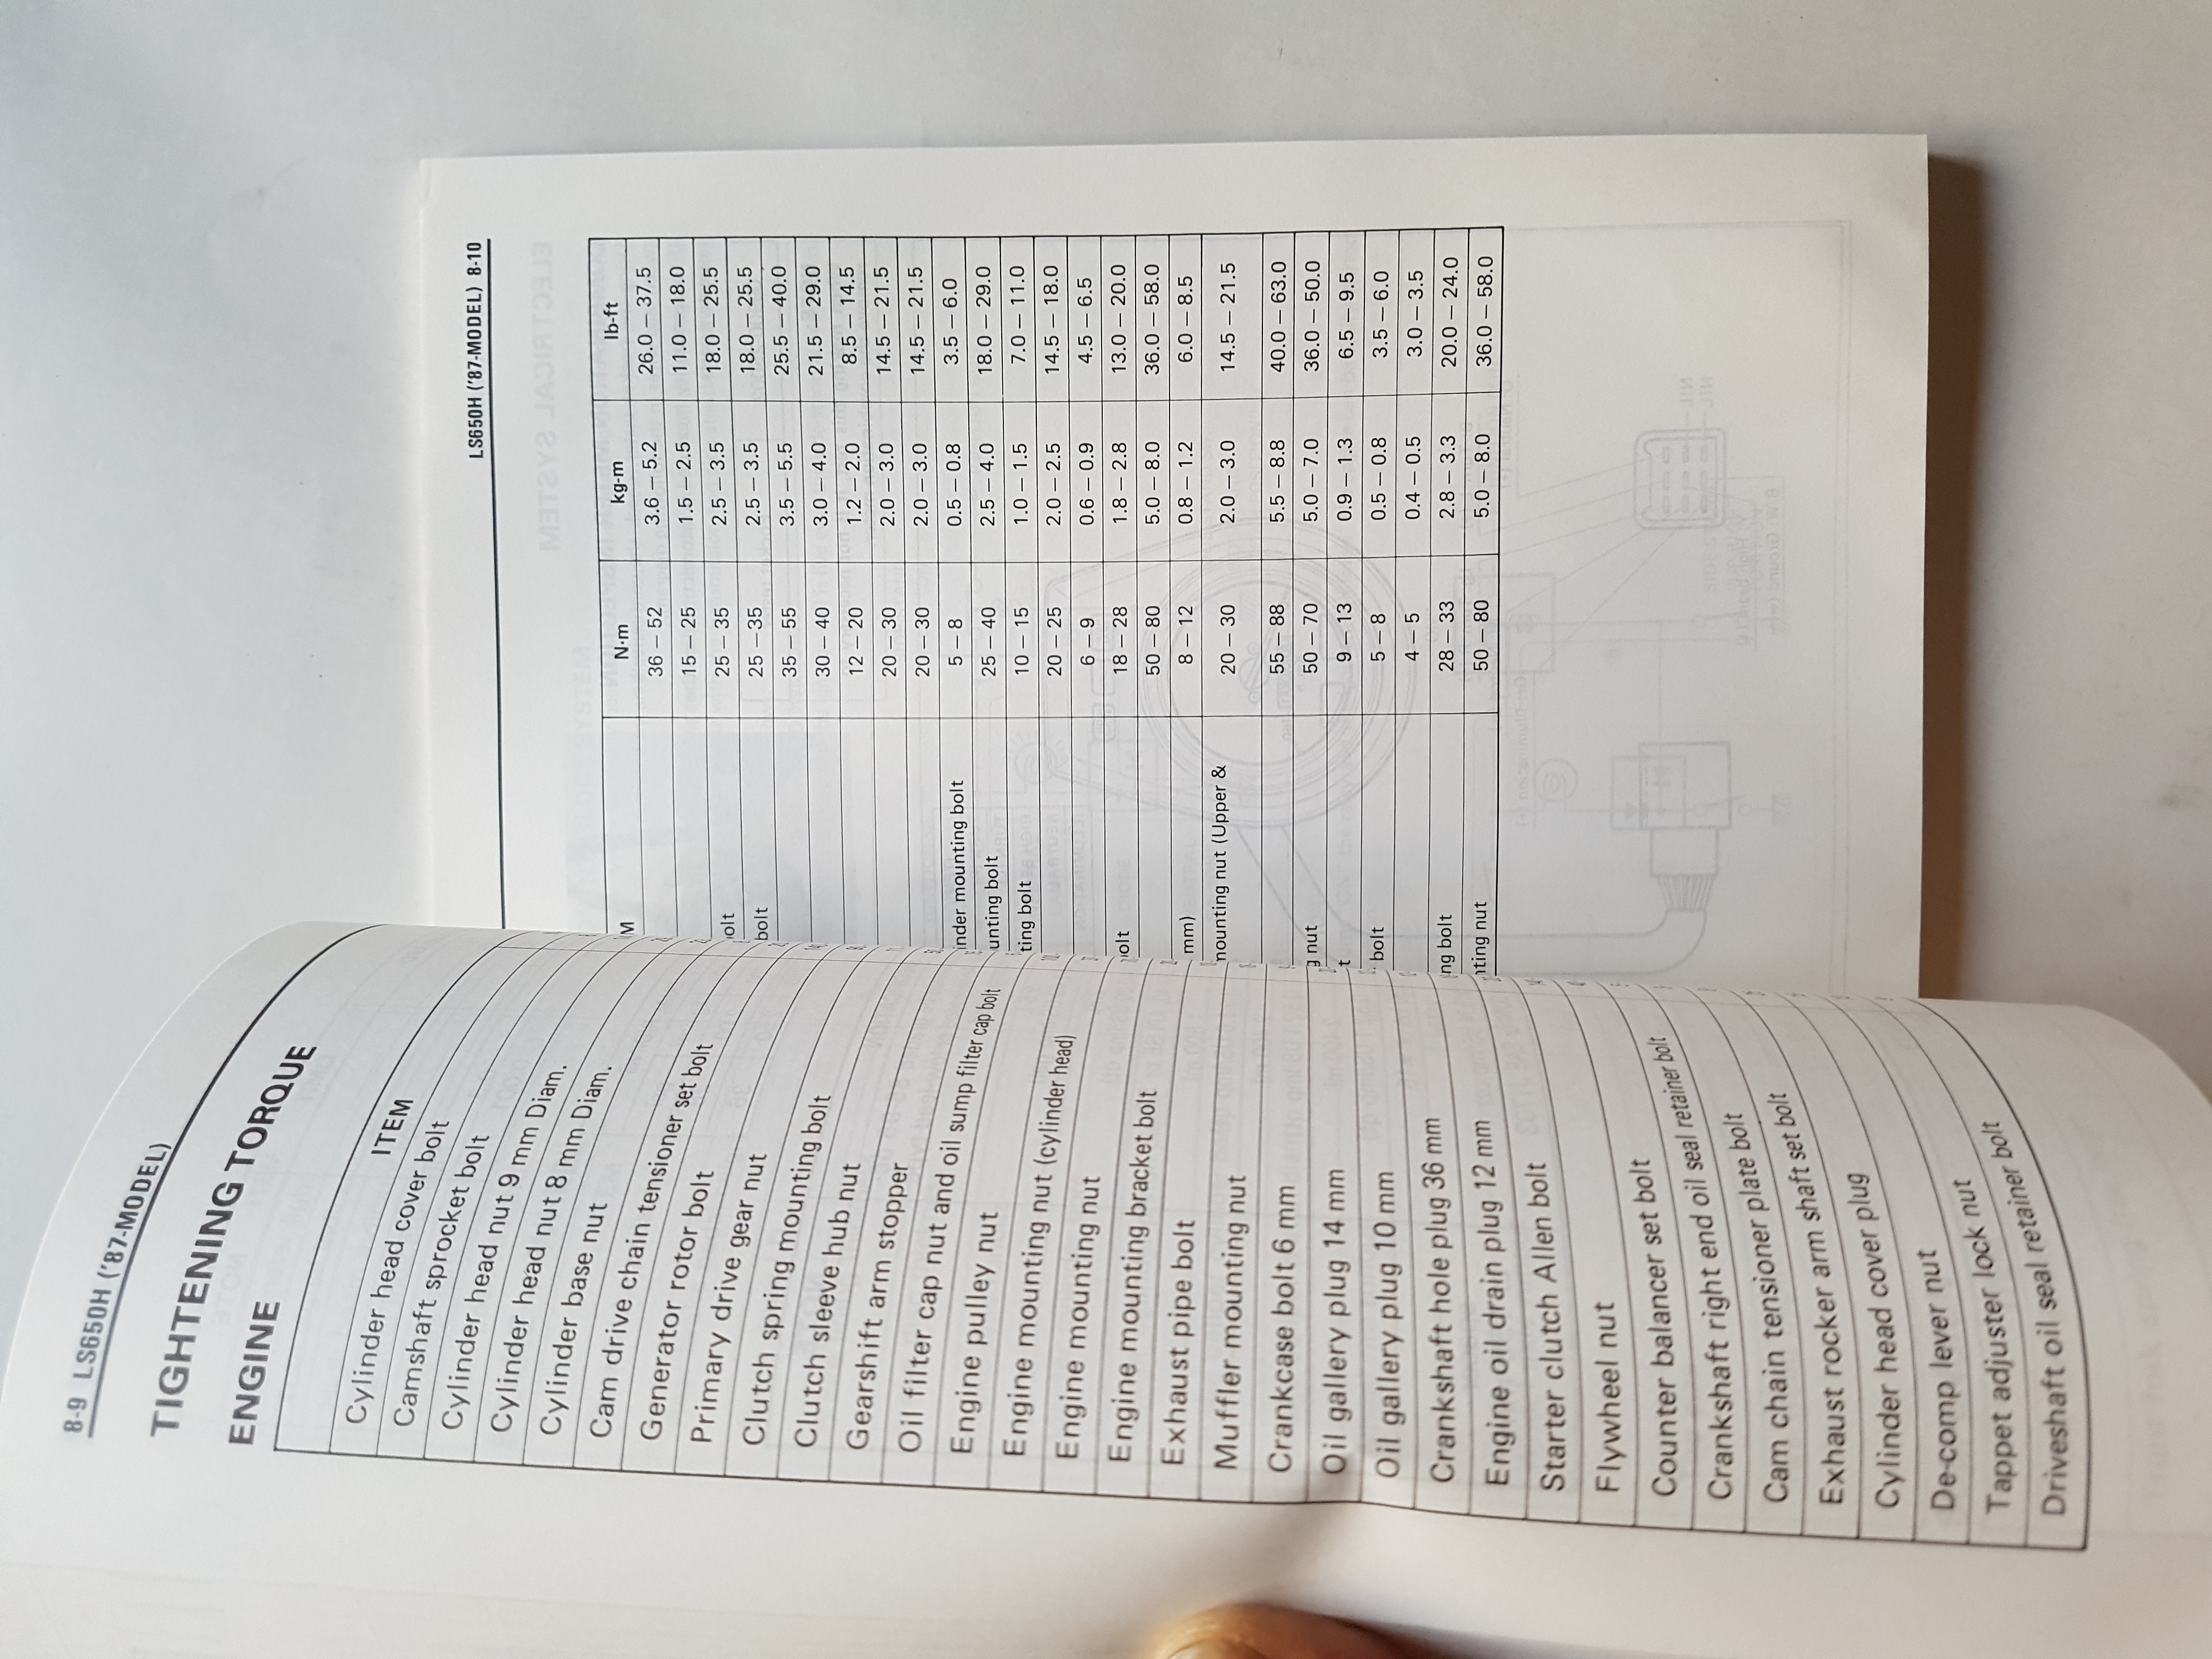 8-9 LS650H ('87-MODEL)
TIGHTENING TORQUE
ENGINE
ITEM
Cylinder head cover bolt
Camshaft sprocket bolt
Cylinder head nut 9 mm Diam.
Cylinder head nut 8 mm Diam.
Cylinder base nut
Cam drive chain tensioner set bolt
Generator rotor bolt
Primary drive gear nut
Clutch spring mounting bolt
Clutch sleeve hub nut
Gearshift arm stopper
Oil filter cap nut and oil sump filter cap bolt
Engine pulley nut
Engine mounting nut (cylinder head)
Engine mounting nut
Engine mounting bracket bolt
Exhaust pipe bolt
Muffler mounting nut
Crankcase bolt 6 mm
Oil gallery plug 14 mm
Oil gallery plug 10 mm
Crankshaft hole plug 36 mm
Engine oil drain plug 12 mm
Starter clutch Allen bolt
Flywheel nut
Counter balancer set bolt
Crankshaft right end oil seal retainer bolt
Cam chain tensioner plate bolt
Exhaust rocker arm shaft set bolt
Cylinder head cover plug
De-comp lever nut
Tappet adjuster lock nut
Driveshaft oil seal retainer bolt
LS650H ('87-MODEL) 8-10
M N·m kg-m lb-ft
36 – 52 3.6 – 5.2 26.0 – 37.5
15 – 25 1.5 – 2.5 11.0 – 18.0
olt 25 – 35 2.5 – 3.5 18.0 – 25.5
bolt 25 – 35 2.5 – 3.5 18.0 – 25.5
35 – 55 3.5 – 5.5 25.5 – 40.0
30 – 40 3.0 – 4.0 21.5 – 29.0
12 – 20 1.2 – 2.0 8.5 – 14.5
20 – 30 2.0 – 3.0 14.5 – 21.5
20 – 30 2.0 – 3.0 14.5 – 21.5
inder mounting bolt 5 – 8 0.5 – 0.8 3.5 – 6.0
unting bolt 25 – 40 2.5 – 4.0 18.0 – 29.0
ting bolt 10 – 15 1.0 – 1.5 7.0 – 11.0
20 – 25 2.0 – 2.5 14.5 – 18.0
6 – 9 0.6 – 0.9 4.5 – 6.5
olt 18 – 28 1.8 – 2.8 13.0 – 20.0
50 – 80 5.0 – 8.0 36.0 – 58.0
mm) 8 – 12 0.8 – 1.2 6.0 – 8.5
mounting nut (Upper & 20 – 30 2.0 – 3.0 14.5 – 21.5
55 – 88 5.5 – 8.8 40.0 – 63.0
g nut 50 – 70 5.0 – 7.0 36.0 – 50.0
t 9 – 13 0.9 – 1.3 6.5 – 9.5
bolt 5 – 8 0.5 – 0.8 3.5 – 6.0
4 – 5 0.4 – 0.5 3.0 – 3.5
ng bolt 28 – 33 2.8 – 3.3 20.0 – 24.0
nting nut 50 – 80 5.0 – 8.0 36.0 – 58.0